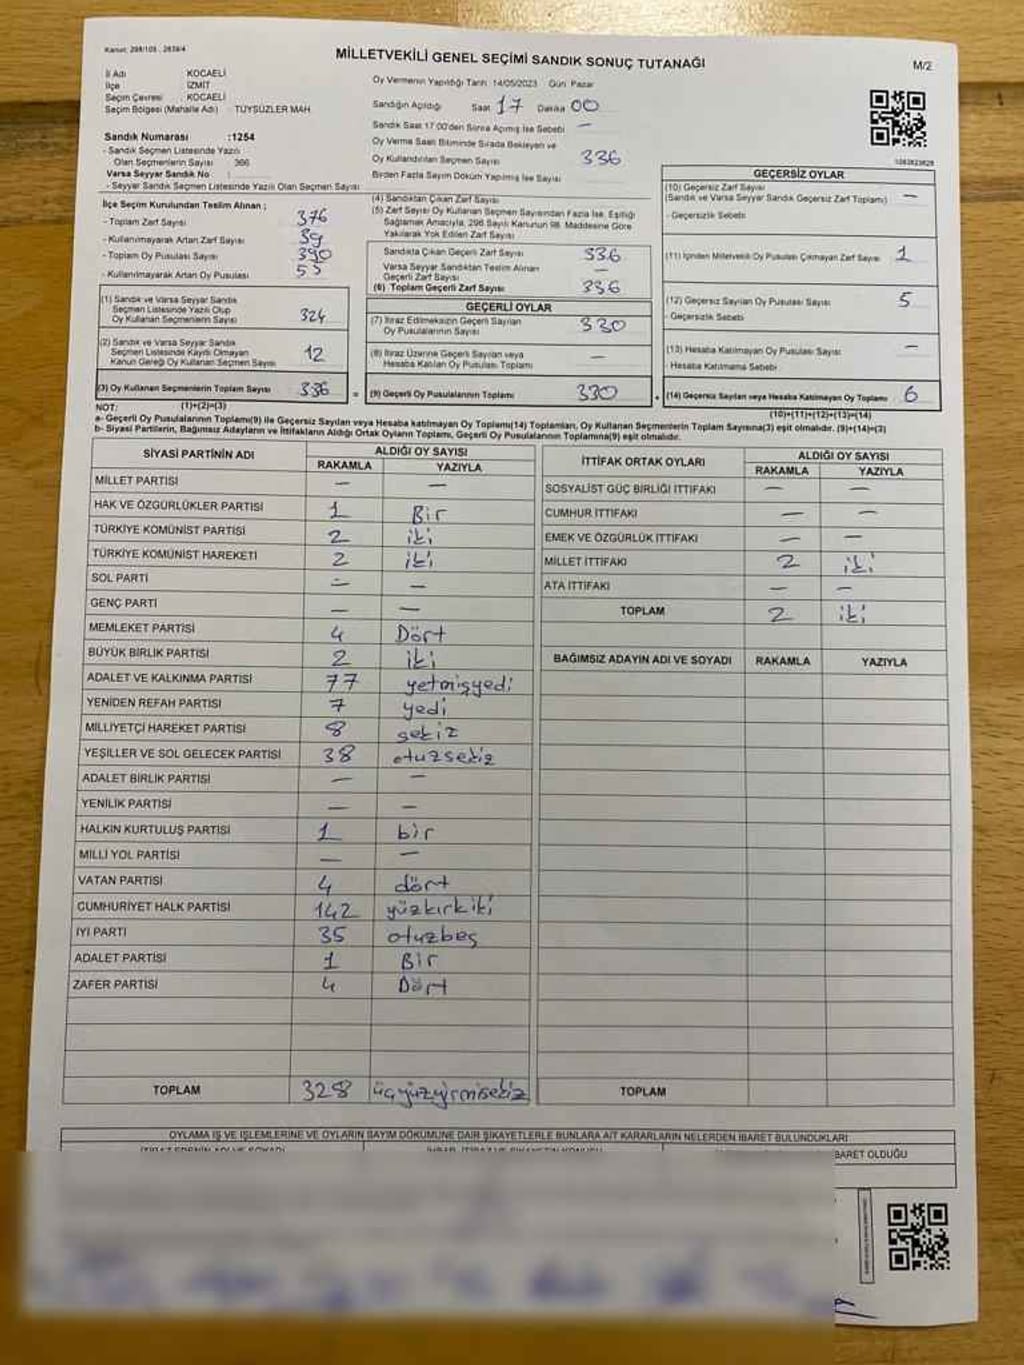 Kanun: 298/105 , 2839/4
MİLLETVEKİLİ GENEL SEÇİMİ SANDIK SONUÇ TUTANAĞI
M/2
İl Adı KOCAELİ
İlçe İZMİT
Seçim Çevresi KOCAELİ
Seçim Bölgesi (Mahalle Adı) : TÜYSÜZLER MAH.
Sandık Numarası :1254
- Sandık Seçmen Listesinde Yazılı
Olan Seçmenlerin Sayısı 366
Varsa Seyyar Sandık No :
- Seyyar Sandık Seçmen Listesinde Yazılı Olan Seçmen Sayısı
Oy Vermenin Yapıldığı Tarih: 14/05/2023 Gün: Pazar
Sandığın Açıldığı Saat 17 Dakika 00
Sandık Saat 17.00'den Sonra Açılmış İse Sebebi —
Oy Verme Saati Bitiminde Sırada Bekleyen ve
Oy Kullandırılan Seçmen Sayısı 336
Birden Fazla Sayım Döküm Yapılmış İse Sayısı
İlçe Seçim Kurulundan Teslim Alınan ;
- Toplam Zarf Sayısı 376
- Kullanılmayarak Artan Zarf Sayısı 39
- Toplam Oy Pusulası Sayısı 390
- Kullanılmayarak Artan Oy Pusulası 53
(1) Sandık ve Varsa Seyyar Sandık
Seçmen Listesinde Yazılı Olup
Oy Kullanan Seçmenlerin Sayısı 324
(2) Sandık ve Varsa Seyyar Sandık
Seçmen Listesinde Kayıtlı Olmayan
Kanun Gereği Oy Kullanan Seçmen Sayısı 12
(3) Oy Kullanan Seçmenlerin Toplam Sayısı 336
(1)+(2)=(3)
(4) Sandıktan Çıkan Zarf Sayısı
(5) Zarf Sayısı Oy Kullanan Seçmen Sayısından Fazla İse, Eşitliği
Sağlamak Amacıyla, 298 Sayılı Kanunun 98. Maddesine Göre
Yakılarak Yok Edilen Zarf Sayısı
Sandıkta Çıkan Geçerli Zarf Sayısı 336
Varsa Seyyar Sandıktan Teslim Alınan
Geçerli Zarf Sayısı —
(6) Toplam Geçerli Zarf Sayısı 336
GEÇERLİ OYLAR
(7) İtiraz Edilmeksizin Geçerli Sayılan
Oy Pusulalarının Sayısı 330
(8) İtiraz Üzerine Geçerli Sayılan veya
Hesaba Katılan Oy Pusulası Toplamı —
= (9) Geçerli Oy Pusulalarının Toplamı 330
GEÇERSİZ OYLAR
(10) Geçersiz Zarf Sayısı
(Sandık ve Varsa Seyyar Sandık Geçersiz Zarf Toplamı) —
- Geçersizlik Sebebi
(11) İçinden Milletvekili Oy Pusulası Çıkmayan Zarf Sayısı 1
(12) Geçersiz Sayılan Oy Pusulası Sayısı 5
- Geçersizlik Sebebi
(13) Hesaba Katılmayan Oy Pusulası Sayısı —
- Hesaba Katılmama Sebebi
+ (14) Geçersiz Sayılan veya Hesaba Katılmayan Oy Toplamı 6
(10)+(11)+(12)+(13)=(14)
NOT:
a- Geçerli Oy Pusulalarının Toplamı(9) ile Geçersiz Sayılan veya Hesaba katılmayan Oy Toplamı(14) Toplamları, Oy Kullanan Seçmenlerin Toplam Sayısına(3) eşit olmalıdır. (9)+(14)=(3)
b- Siyasi Partilerin, Bağımsız Adayların ve İttifakların Aldığı Ortak Oyların Toplamı, Geçerli Oy Pusulalarının Toplamına(9) eşit olmalıdır.
SİYASİ PARTİNİN ADI ALDIĞI OY SAYISI
RAKAMLA YAZIYLA
MİLLET PARTİSİ — —
HAK VE ÖZGÜRLÜKLER PARTİSİ 1 Bir
TÜRKİYE KOMÜNİST PARTİSİ 2 iki
TÜRKİYE KOMÜNİST HAREKETİ 2 iki
SOL PARTİ — —
GENÇ PARTİ — —
MEMLEKET PARTİSİ 4 Dört
BÜYÜK BİRLİK PARTİSİ 2 iki
ADALET VE KALKINMA PARTİSİ 77 yetmişyedi
YENİDEN REFAH PARTİSİ 7 yedi
MİLLİYETÇİ HAREKET PARTİSİ 8 sekiz
YEŞİLLER VE SOL GELECEK PARTİSİ 38 otuzsekiz
ADALET BİRLİK PARTİSİ — —
YENİLİK PARTİSİ — —
HALKIN KURTULUŞ PARTİSİ 1 bir
MİLLİ YOL PARTİSİ — —
VATAN PARTİSİ 4 dört
CUMHURİYET HALK PARTİSİ 142 yüzkırkiki
İYİ PARTİ 35 otuzbeş
ADALET PARTİSİ 1 Bir
ZAFER PARTİSİ 4 Dört
TOPLAM 328 üçyüzyirmisekiz
İTTİFAK ORTAK OYLARI ALDIĞI OY SAYISI
RAKAMLA YAZIYLA
SOSYALİST GÜÇ BİRLİĞİ İTTİFAKI — —
CUMHUR İTTİFAKI — —
EMEK VE ÖZGÜRLÜK İTTİFAKI — —
MİLLET İTTİFAKI 2 iki
ATA İTTİFAKI — —
TOPLAM 2 iki
BAĞIMSIZ ADAYIN ADI VE SOYADI RAKAMLA YAZIYLA
TOPLAM
OYLAMA İŞ VE İŞLEMLERİNE VE OYLARIN SAYIM DÖKÜMÜNE DAİR ŞİKAYETLERLE BUNLARA AİT KARARLARIN NELERDEN İBARET BULUNDUKLARI
BARET OLDUĞU